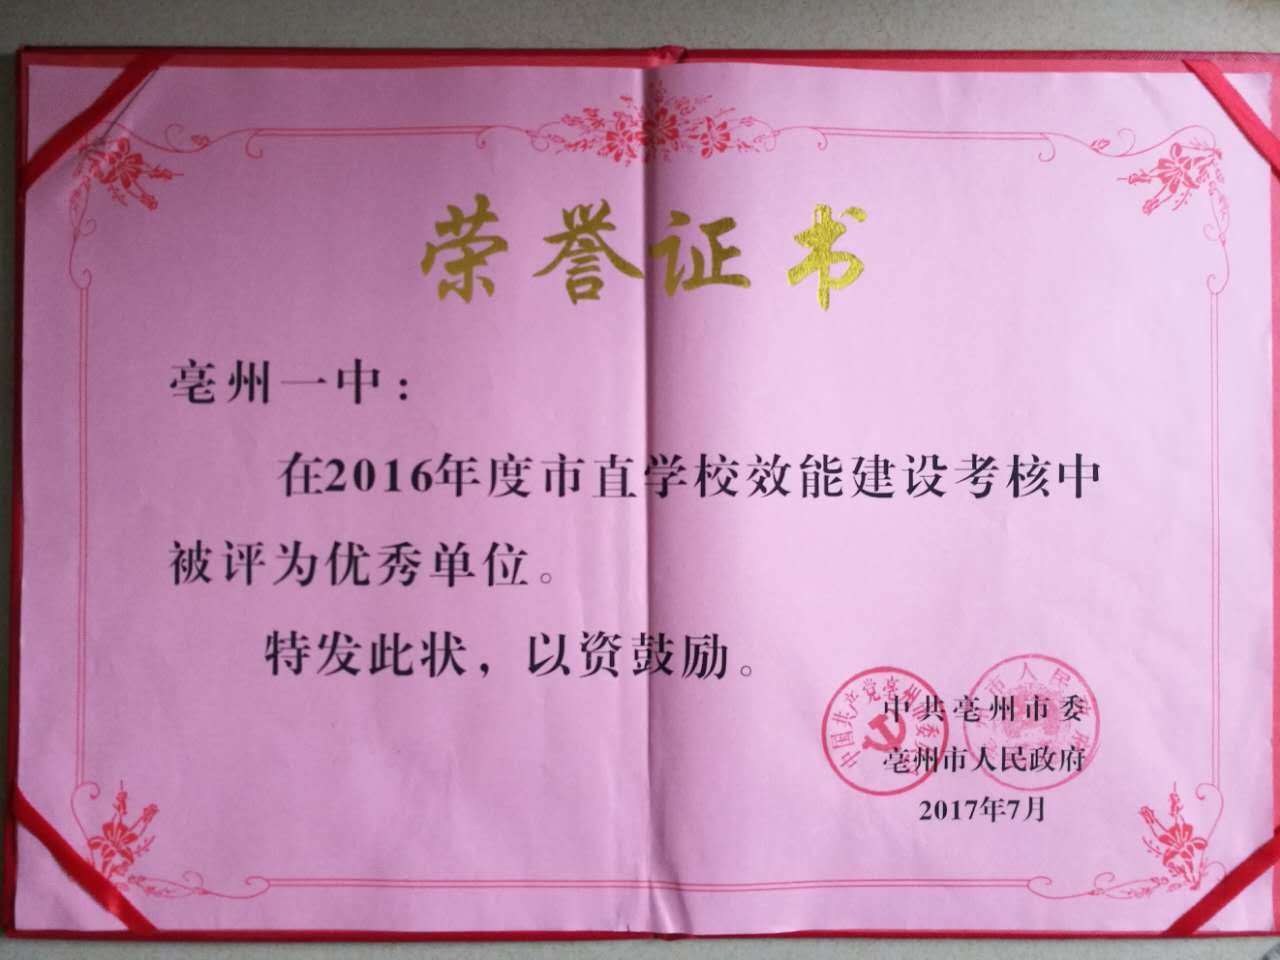 荣誉证书
亳州一中：
在2016年度市直学校效能建设考核中
被评为优秀单位。
特发此状，以资鼓励。
中共亳州市委
亳州市人民政府
2017年7月
中国共产党亳州市委
市人民